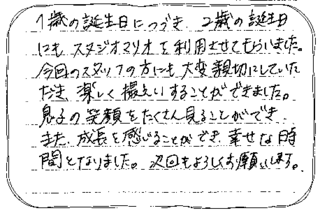 1歳の誕生日につづき、2歳の誕生日
にも、スタジオマリオを利用させてもらいました。
今回のスタッフの方にも大変親切にしていた
だき、楽しく撮えいすることができました。
息子の笑顔をたくさん見ることができ、
また、成長を感じることができ、幸せな時
間となりました。次回もよろしくお願いします。